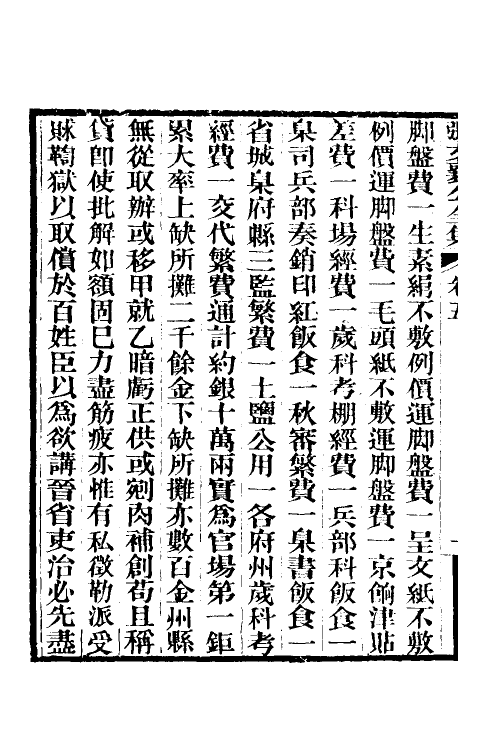 脚盤費一生素絹不敷例價運脚盤費一呈文紙不敷
例價運脚盤費一毛頭紙不敷運脚盤費一京餉津貼
差費一科場經費一歲科考棚經費一兵部科飯食一
臬司兵部奏銷印紅飯食一秋審繁費一臬書飯食一
省城臬府縣三監繁費一土鹽公用一各府州歲科考
經費一交代繁費通計約銀十萬兩實爲官場第一鉅
累大率上缺所攤二千餘金下缺所攤亦數百金州縣
無從取辦或移甲就乙暗虧正供或剜肉補創苟且稱
貸卽使批解如額固已力盡筋疲亦惟有私徵勒派受
賕鞫獄以取償於百姓臣以爲欲講晉省吏治必先盡